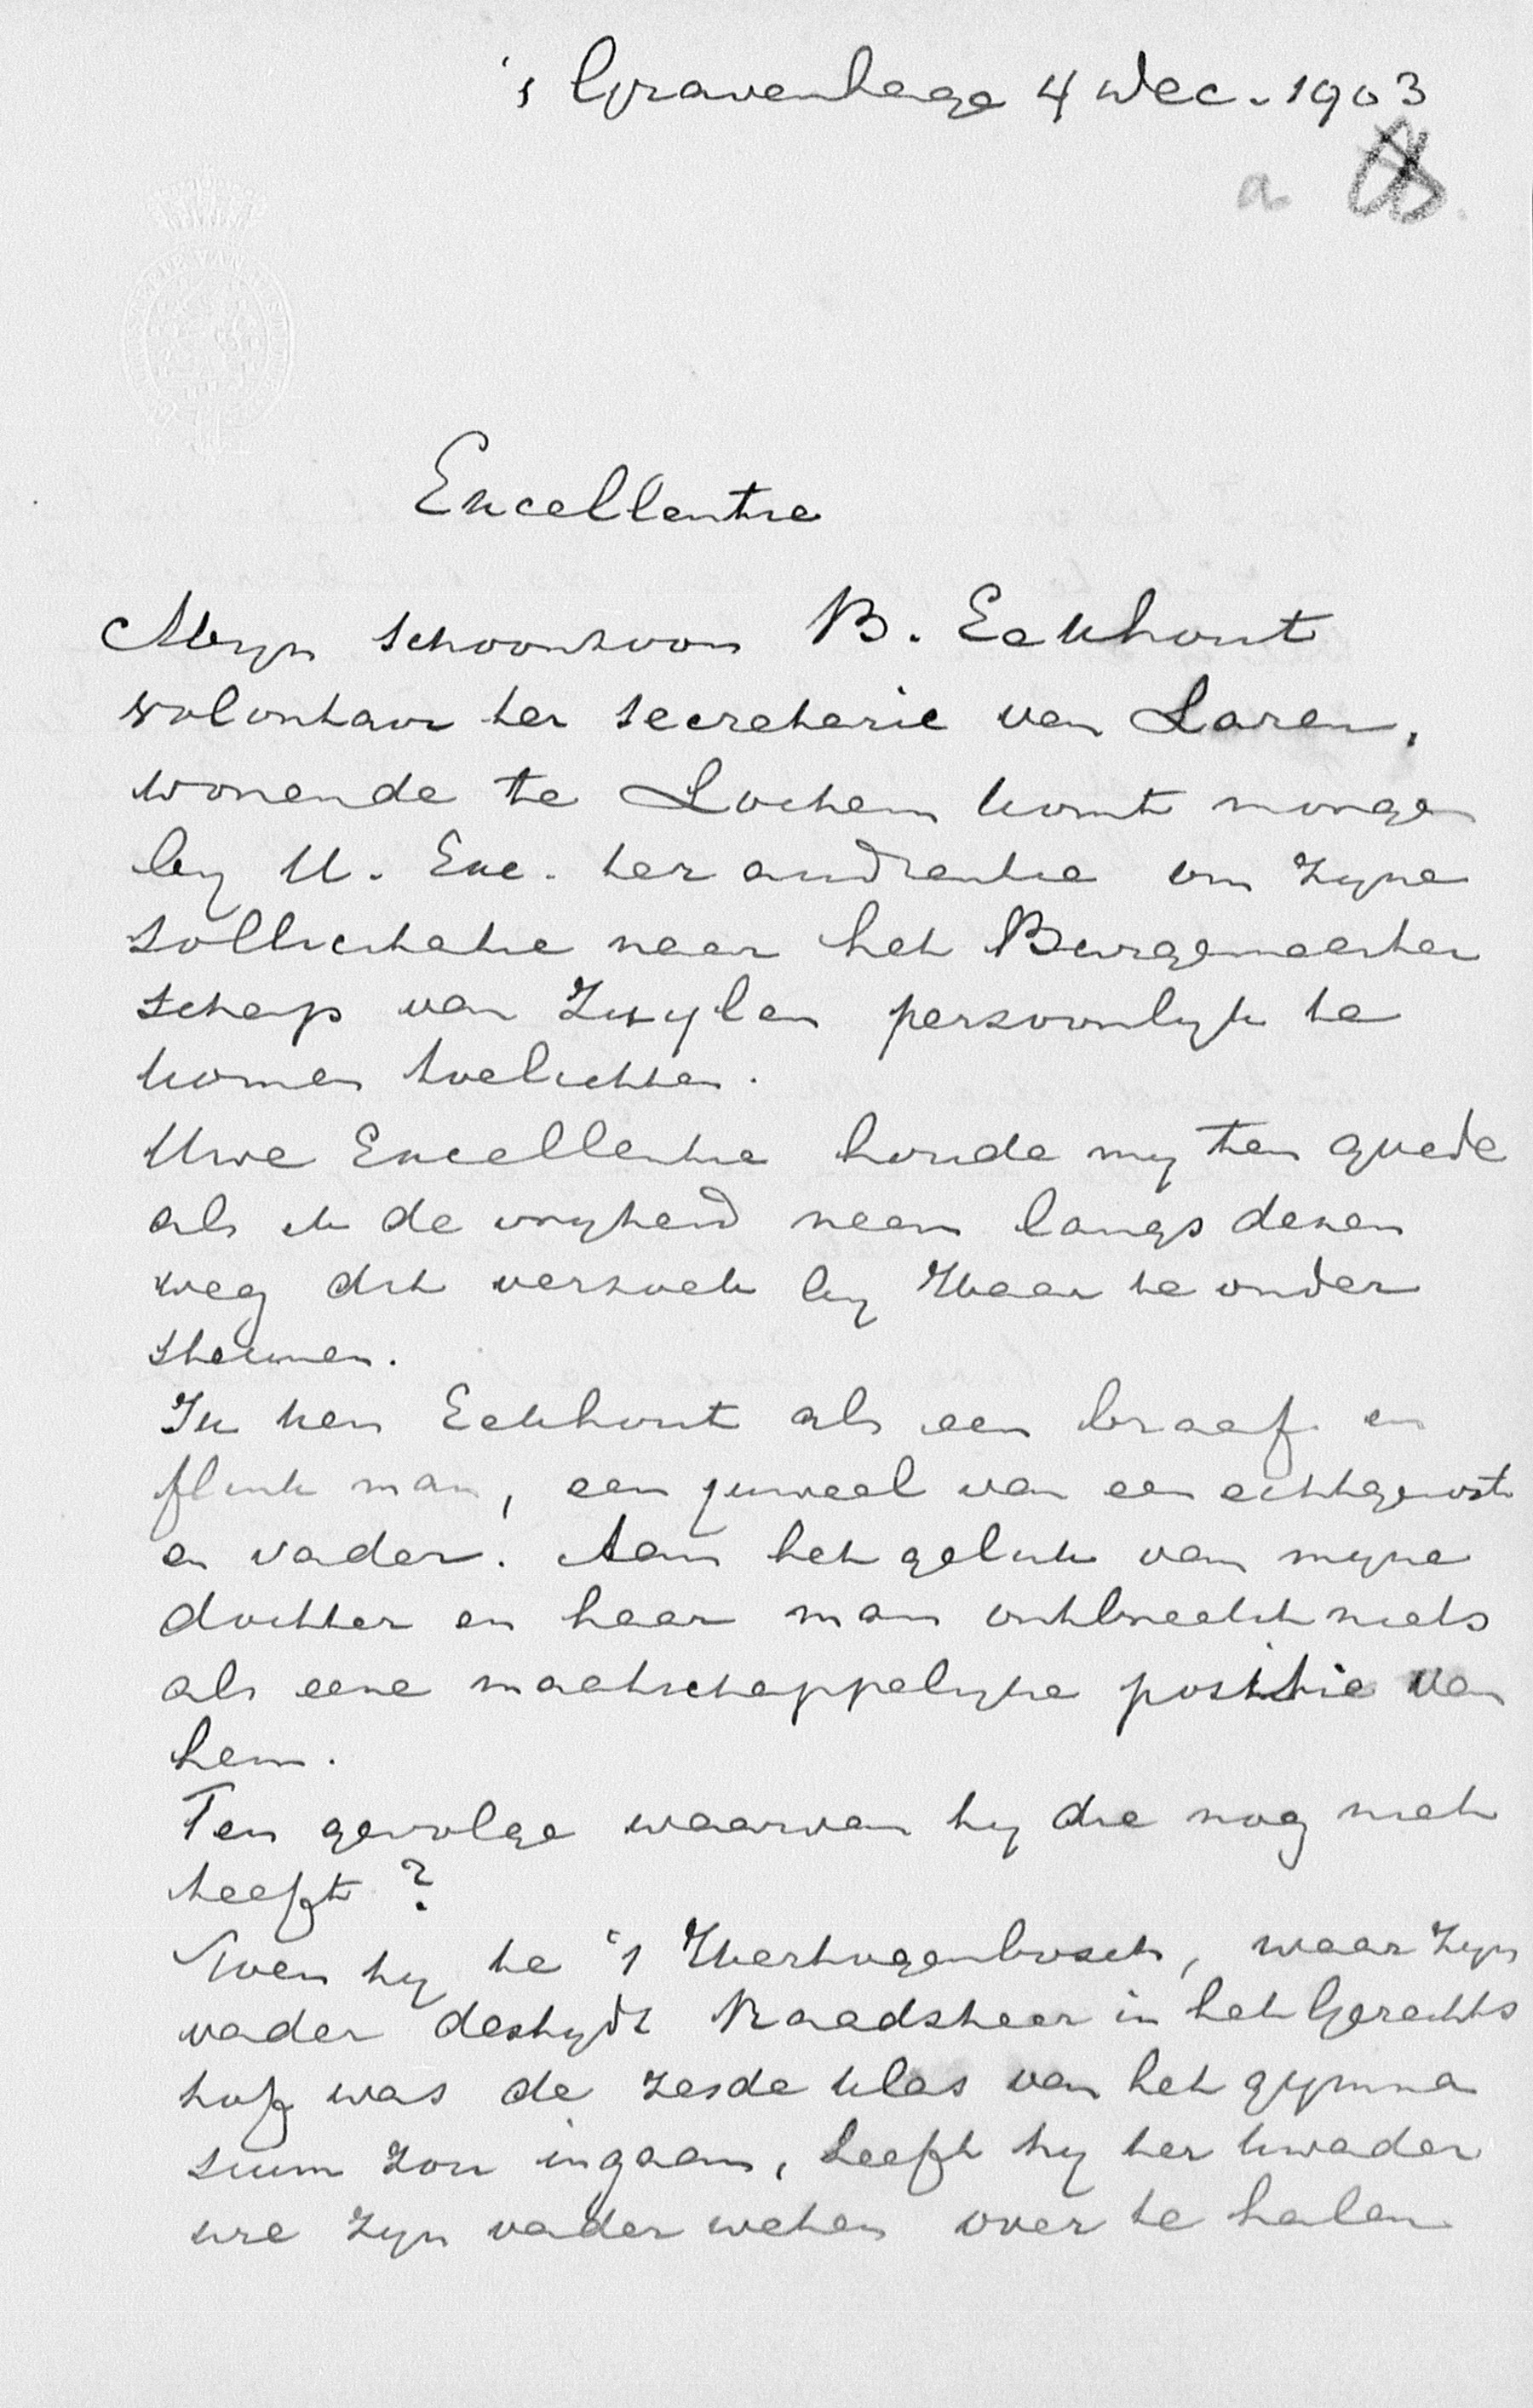 's Gravenhage 4 Dec. 1903
a
Excellentie
Mijn schoonzoon B. Eekhout
volontair ter secretarie van Laren,
wonende te Lochem komt morgen
bij U. Exc. ter audientie om zijne
sollicitatie naar het Burgemeester
schap van Zuylen persoonlijk te
komen toelichten.
Uwe Excellentie houde mij ten goede
als ik de vrijheid neem langs dezen
weg dit verzoek bij Haar te onder
steunen.
Ik ken Eekhout als een braaf en
flink man, een juweel van een echtgenoot
en vader. Aan het geluk van mijne
dochter en haar man ontbreekt niets
als eene maatschappelijke positie van
hem.
Ten gevolge waarvan hij die nog niet
heeft?
Toen hij te 's Hertogenbosch, waar zijn
vader destijds Raadsheer in het Gerechts
hof was de zesde klas van het gymna
sium zou ingaan, heeft hij ter kwader
ure zijn vader weten over te halen